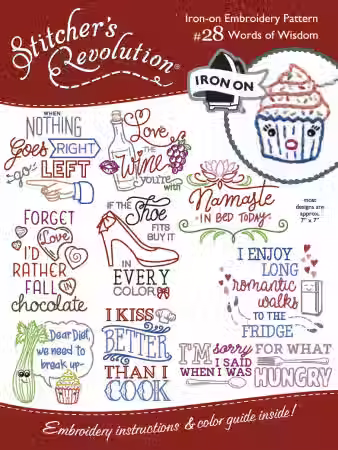 Stitcher's
Revolution®
Iron-on Embroidery Pattern
#28 Words of Wisdom
IRON ON
WHEN
NOTHING
Goes RIGHT
go LEFT
Love
THE
Wine
you're
with
Namaste
IN BED TODAY
most
designs are
approx.
7" x 7"
FORGET
Love
I'D
RATHER
FALL IN
chocolate
IF THE
Shoe
FITS
BUY IT
IN
EVERY
COLOR
I ENJOY
LONG
romantic
walks
TO THE
FRIDGE
Dear Diet,
we need to
break up-
I KISS
BETTER
THAN I
COOK
I'M sorry FOR WHAT
I SAID
WHEN I WAS HUNGRY
Embroidery instructions & color guide inside!